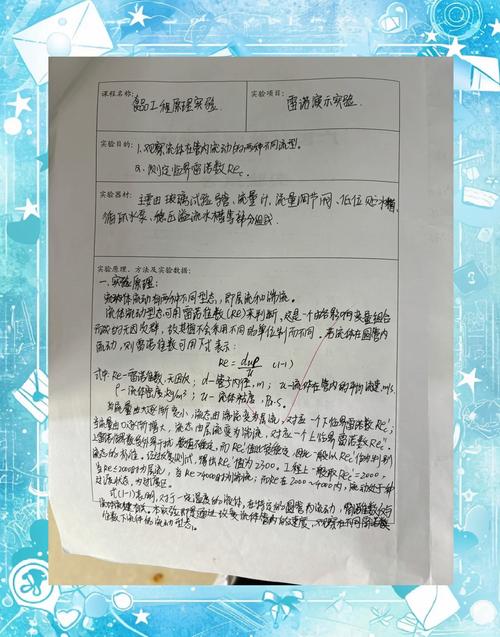 课程名称: 食品工程原理实验 实验项目: 雷诺演示实验.
实验目的: 1.观察流体在管内流动的两种不同流型。
2.测定临界雷诺数Rec。
实验器材: 主要由玻璃试验导管、流量计、流量调节阀、低位贮水槽、
循环水泵、稳压溢流水槽等部分组成
实验原理、方法及实验数据:
一.实验原理:
流体流动有两种不同型态,即层流和湍流。
流体流动型态可用雷诺准数(Re)来判断,这是一个由各影响变量组合
而成的无因次群,故其值不会采用不同的单位制而不同。若流体在圆管内
流动,则雷诺准数可用下式表示:
Re = duρ/μ (1-1)
式中: Re-雷诺准数,无因次; d-管子内径,m; u-流体在管内的平均流速,m/s.
ρ-流体密度,kg/m³; μ-流体粘度,Pa.s.
当流量由大逐渐变小,流态由湍流变为层流,对应一个下临界雷诺数Rec';
当流量由小逐渐增大,流态由层流变为湍流,对应一个上临界雷诺数Rec''.
上临界雷诺数受外界干扰,数值不稳定,而Rec'值比较稳定,因此一般以Rec'作为判别
流态的标准。经过反复测试,得出Rec'值为2300。工程上一般取Rec'=2000,
当Re≤2000时为层流;当Re>4000时为湍流;而Re在2000~4000内,流动处于一种
过渡状态,
式(1-1)表明,对于一定温度的流体,在特定的圆管内流动,雷诺准数仅与
流体流速有关。本实验即是通过改变流体在管内的速度,观察在不同雷诺
准数下流体的流动型态。